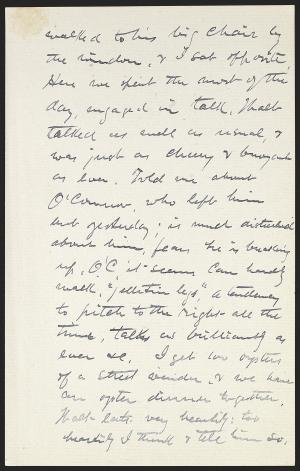 walked to his big chair by
the window, & I sat opposite.
Here we spent the most of the
day, engaged in talk. Walt
talked as well as usual, &
was just as cheery & buoyant
as ever. Told me about
O'Connor, who left him
but yesterday; is much disturbed
about him, fears he is breaking
up. O'C, it seems can hardly
walk, "gelatin legs", a tendency
to pitch to the right all the
time, talks as brilliantly as
ever al. I get 100 oysters
of a street vender & we have
an oyster dinner together.
Walt eats very heartily: too
heartily I think & tell him so.